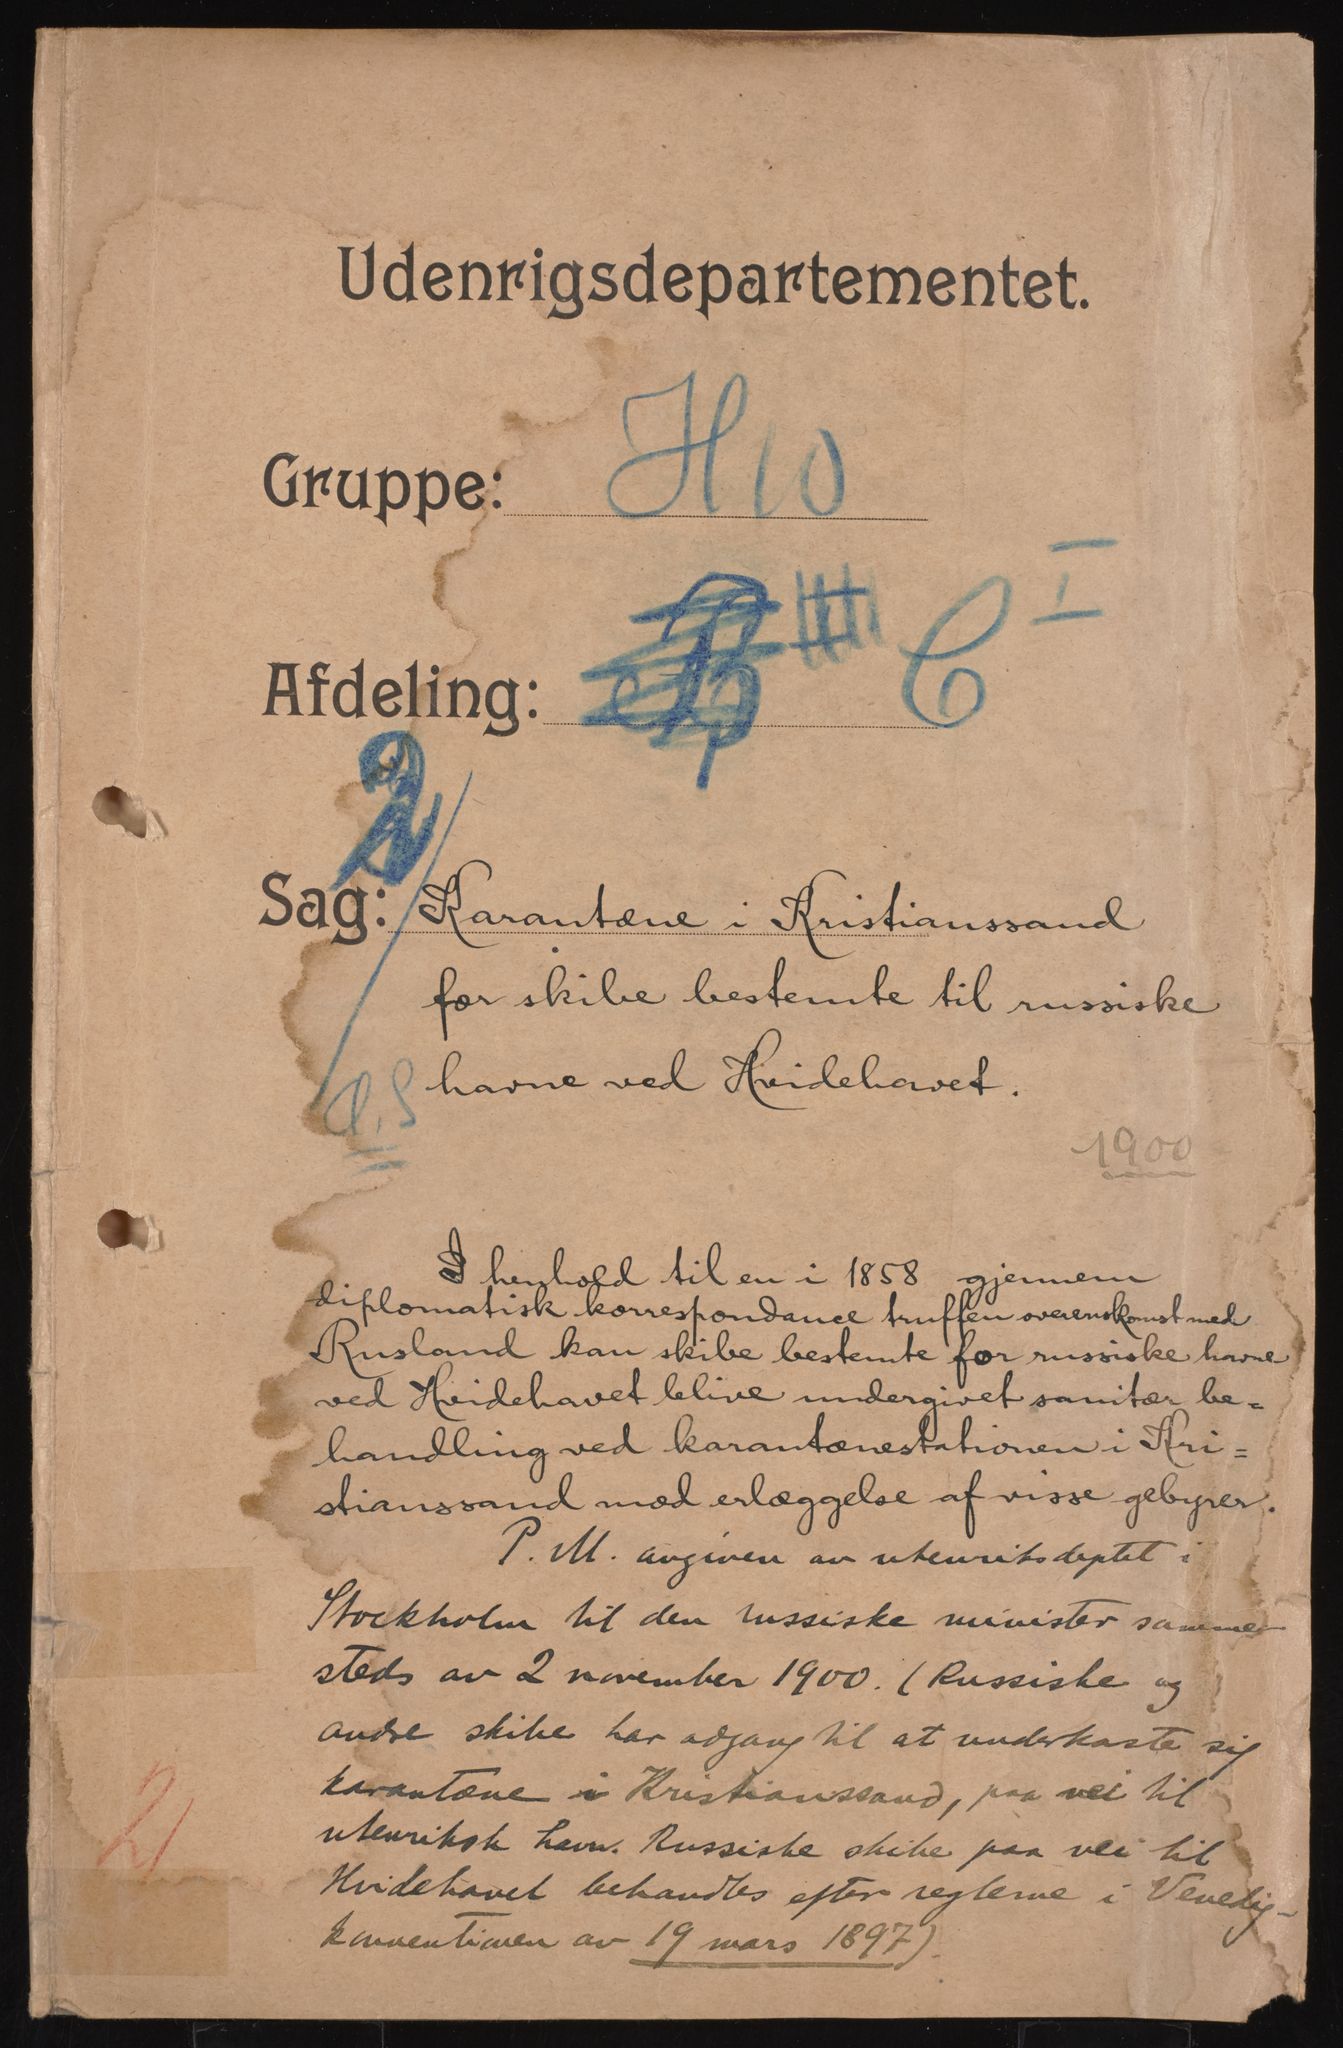 Udenrigsdepartementet.
Gruppe: H 10
Afdeling: C I
2
Sag: Karantæne i Kristianssand
for skibe bestemte til russiske
havne ved Hvidehavet.
1900
I henhold til en i 1858 gjennem
diplomatisk korrespondance truffen overenskomst med
Rusland kan skibe bestemte for russiske havne
ved Hvidehavet blive undergivet sanitær be=
handling ved karantænestationen i Kri=
stianssand mod erlæggelse af visse gebyrer.
P. M. avgiven av utenriksdeptet i
Stockholm til den russiske minister samme-
steds av 2 november 1900. (Russiske og
andre skibe har adgang til at underkaste sig
karantæne i Kristianssand, paa vei til
utenriksk havn. Russiske skibe paa vei til
Hvidehavet behandles efter reglerne i Venedig-
konventionen av 19 mars 1897).
2